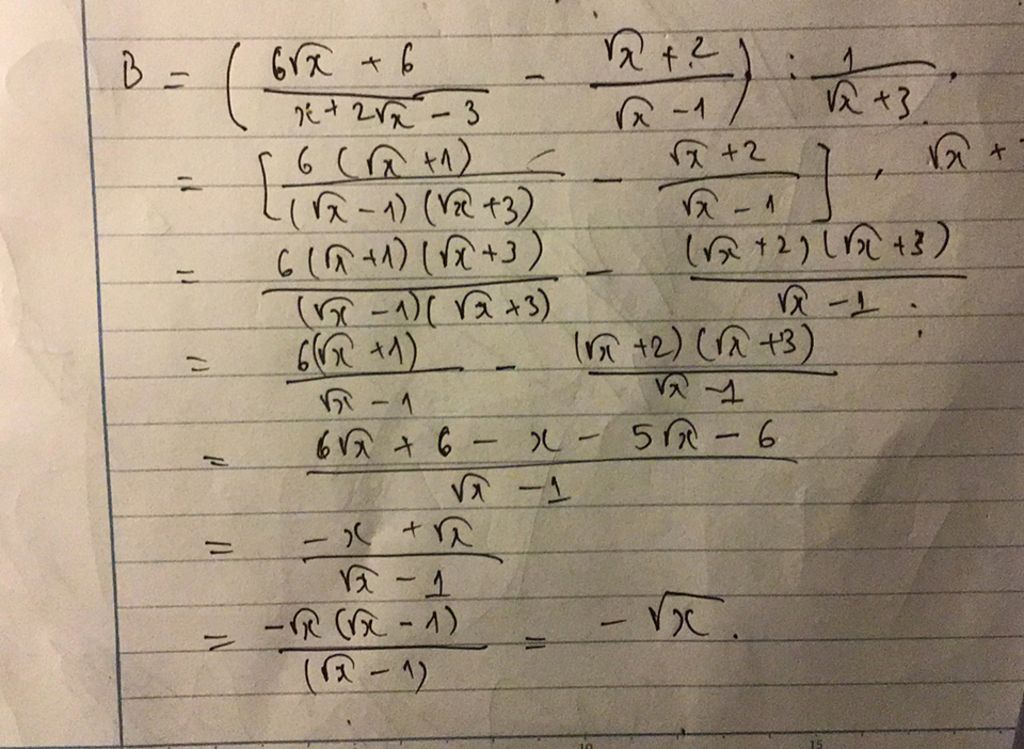 B = ( (6√x + 6)/(x + 2√x - 3) - (√x + 2)/(√x - 1) ) : 1/(√x + 3) .
= [ 6(√x + 1)/((√x - 1)(√x + 3)) - (√x + 2)/(√x - 1) ] . √x +
= 6(√x + 1)(√x + 3)/((√x - 1)(√x + 3)) - (√x + 2)(√x + 3)/(√x - 1) .
= 6(√x + 1)/(√x - 1) - (√x + 2)(√x + 3)/(√x - 1)
= (6√x + 6 - x - 5√x - 6)/(√x - 1)
= (-x + √x)/(√x - 1)
= -√x(√x - 1)/(√x - 1) = -√x .
10 15